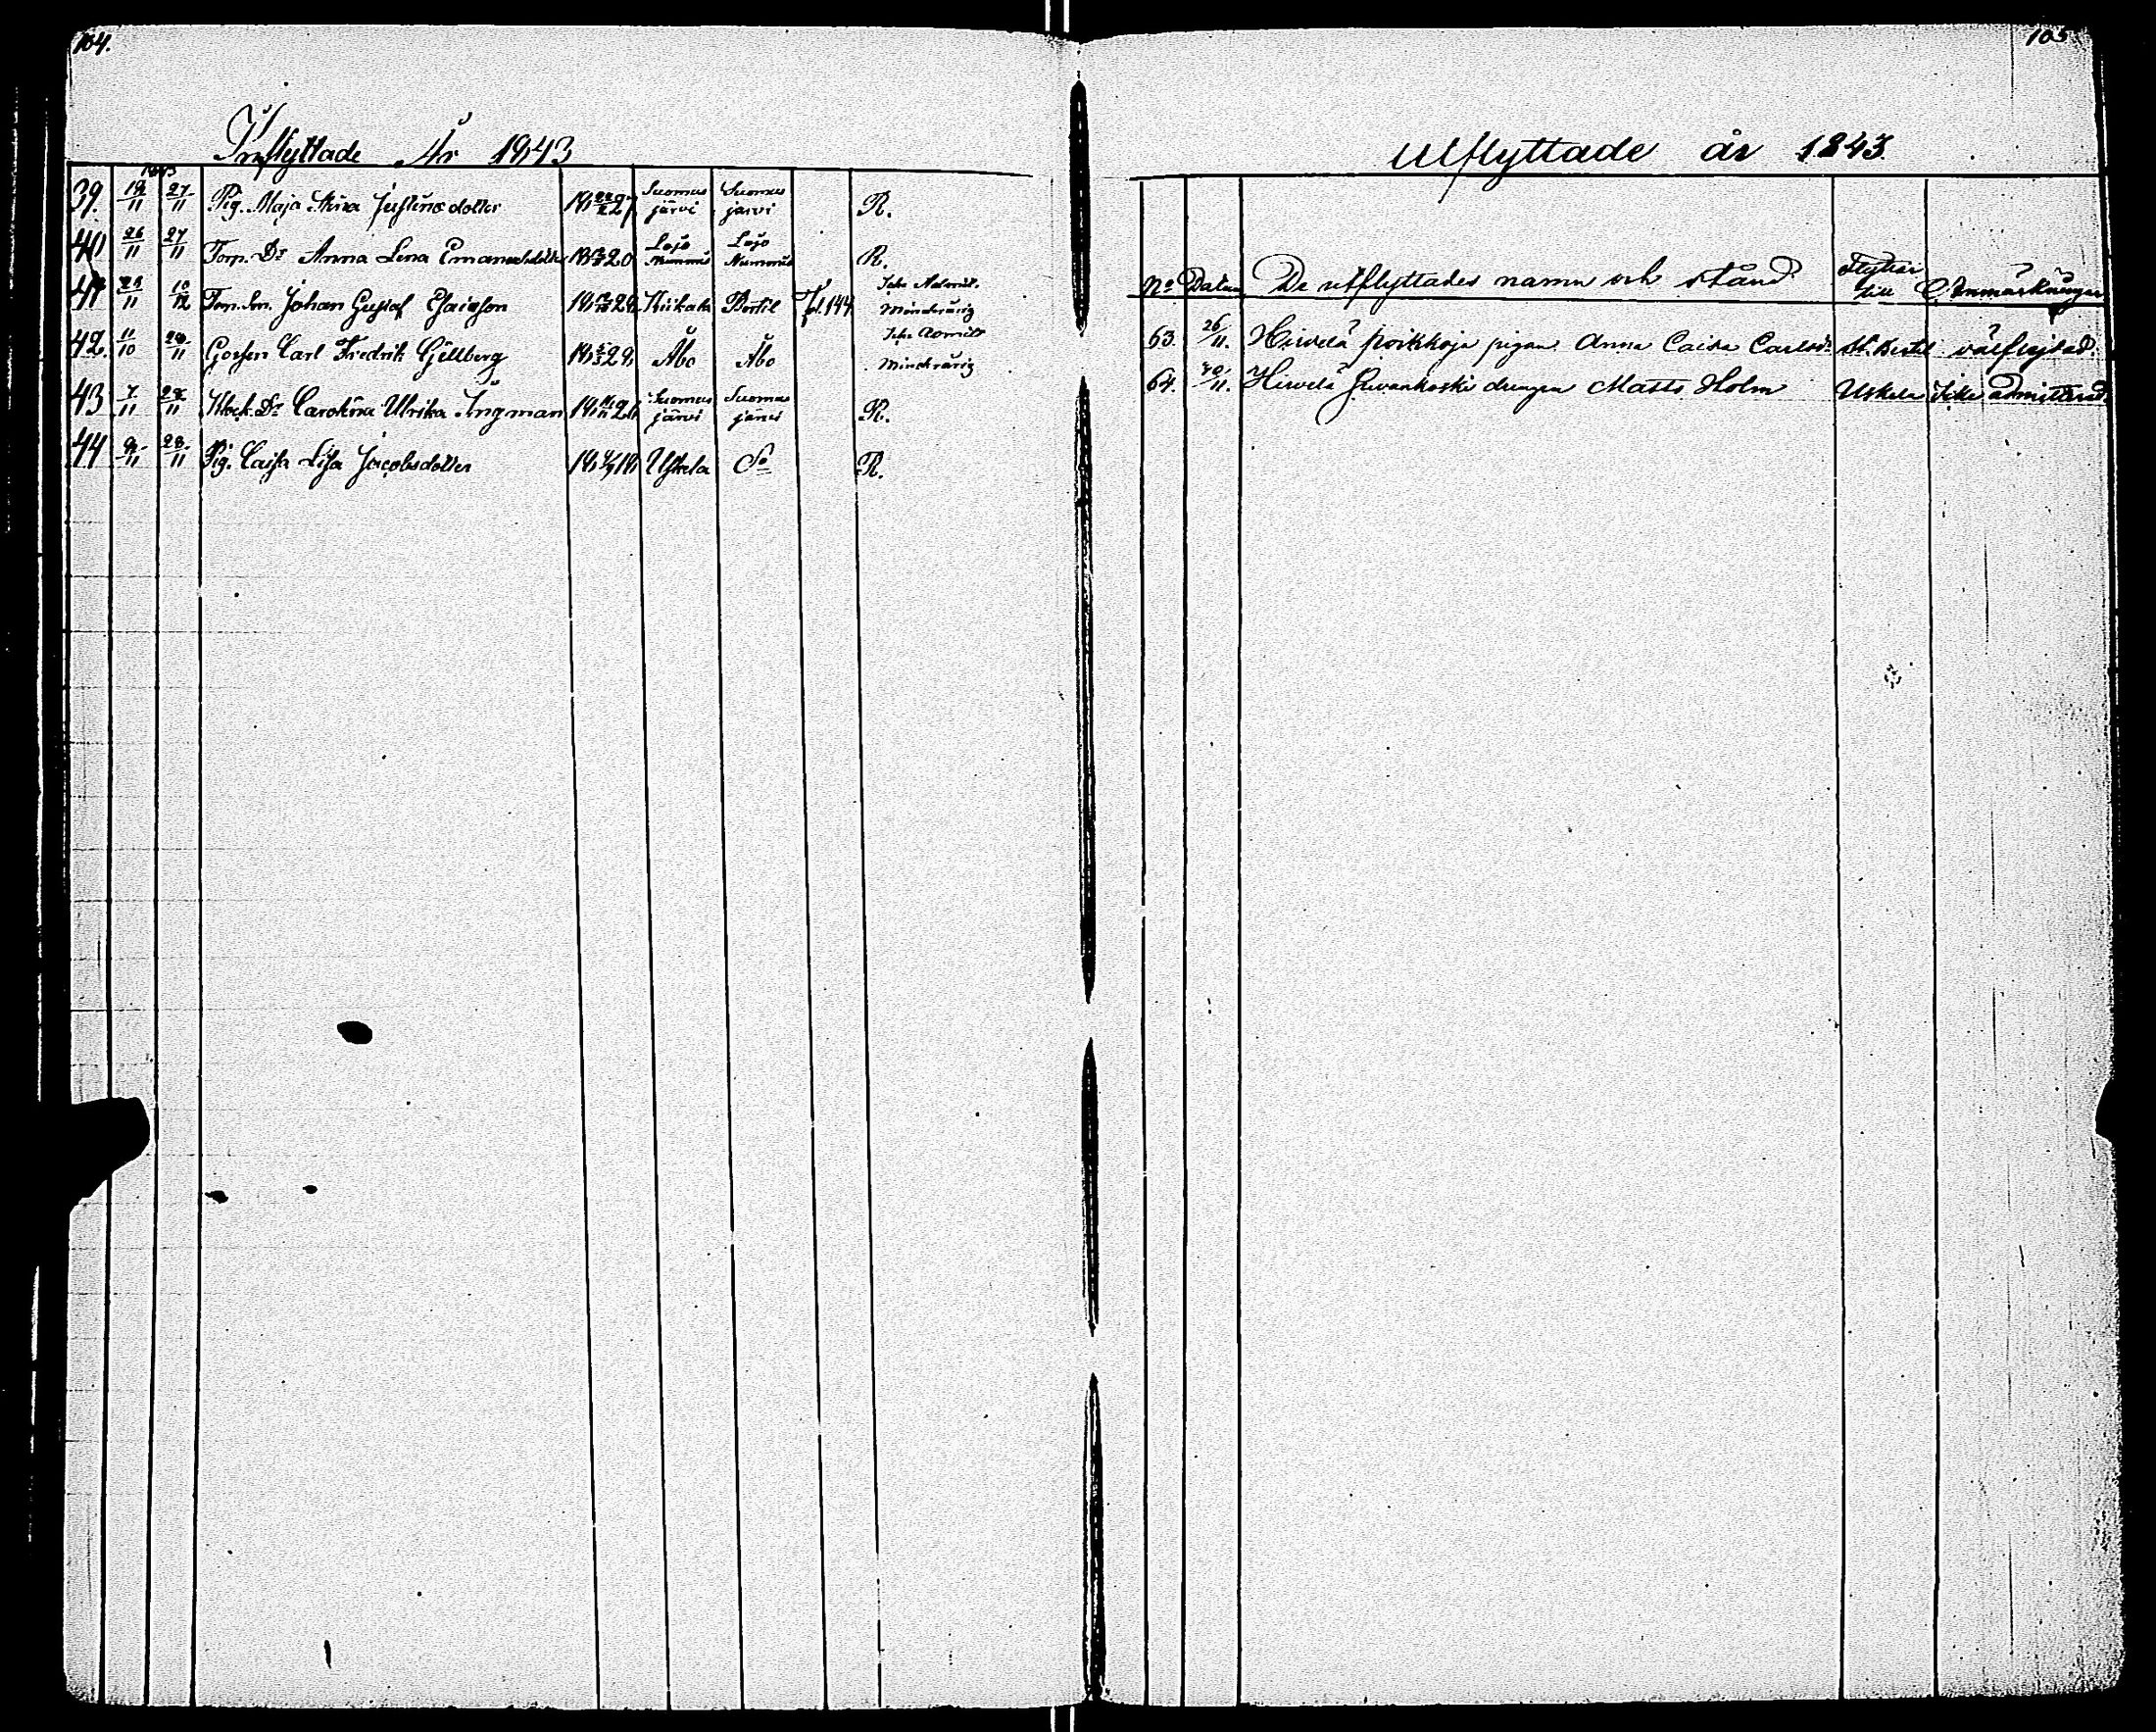 104.
Inflyttade År 1843
1843
39. 19/11 27/11 Pig. Maja Stina Justinæ dotter 18 22/2 27 Suomusjärvi Suomusjärvi R.
40 26/11 27/11 Torp. Dr Anna Lena Emanuelsdotter 20 Lojo Nummis Lojo Nummis R.
41 11 10/12 Torp. Son. Johan Gustaf Esaiasson Kiikala Bertil fol. 144 Icke Admitt. Minderårig
42. 11/10 11 Gossen Carl Fredrik Gellberg Åbo Åbo Icke Admitt Minderårig
43 7/11 28/11 Klock. Dr Carolina Ulrika Ingman Suomusjärvi Suomusjärvi R.
44 9/11 28/11 Pig. Caisa Lisa Jacobsdotter Uskela Do R.
105
Utflyttade år 1843.
No Datum De utflyttades namn och stånd Flyttar till Anmärkningar
63. 26/11. Hirvelä poikkoja pigan Anna Caisa Carlsdr St. Bertil välfrejdad.
64. 11. Hirvelä Juvankoski drengen Matts Holm Uskela Icke admitterad.